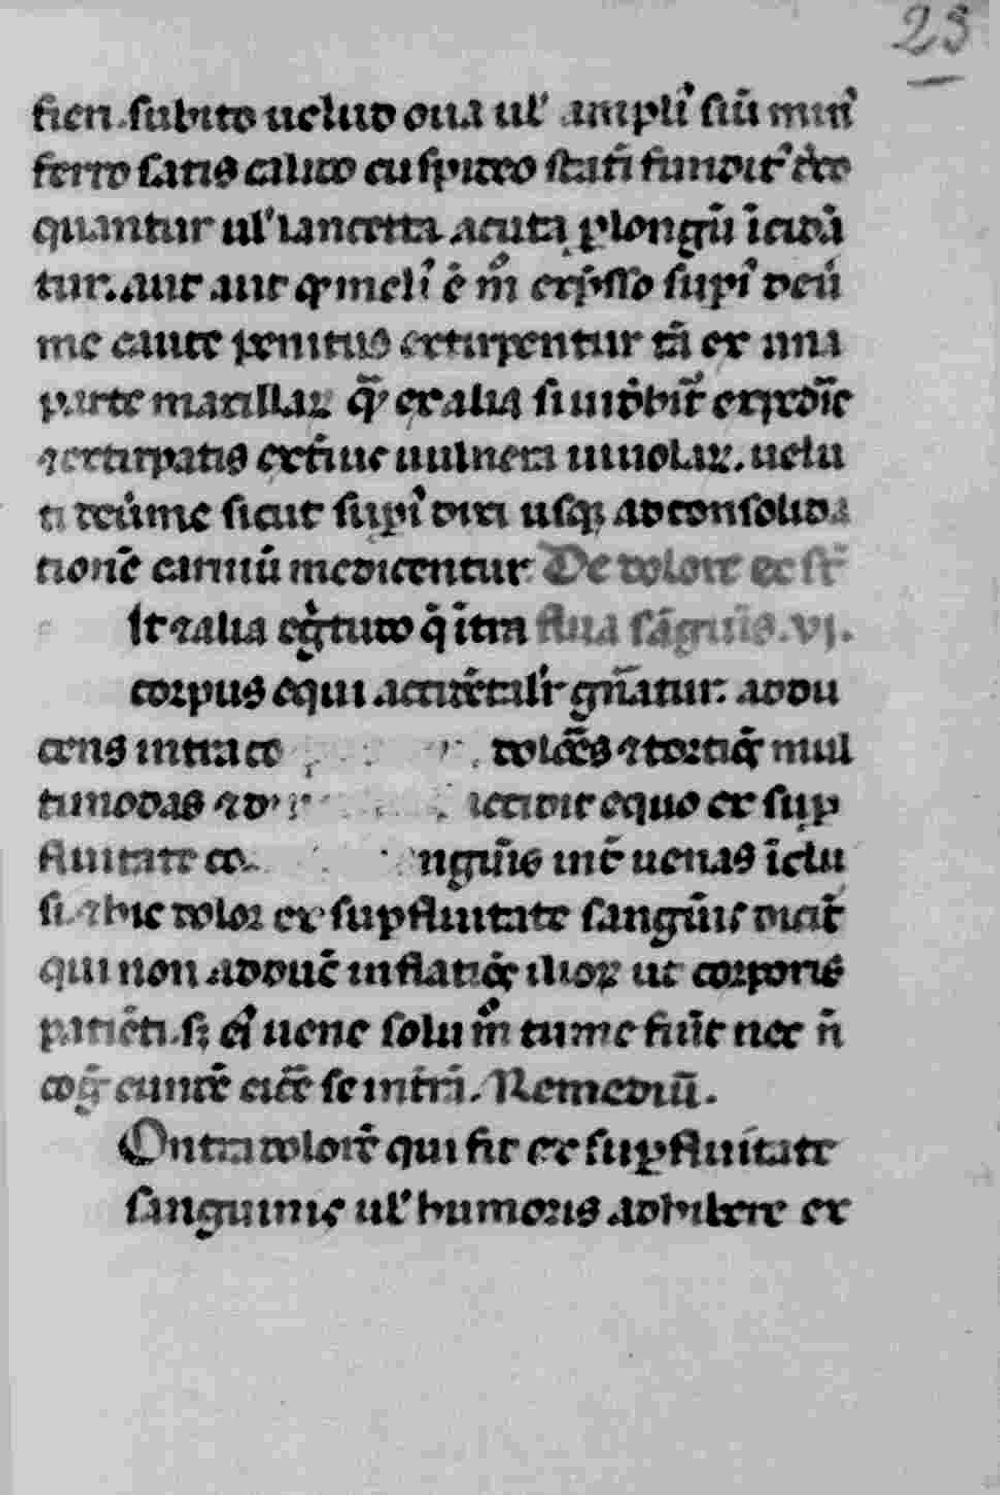 23
fieri. subito uelud oua ul' ampli' siū min'
ferro satis calido cuspideo statī fundit' deco
quantur ul' lancetta acuta p longū īcidā
tur. aut aut qd meli' ē m̊ exp̄sso supi' veū
me caute penitus extirpentur tā ex una
parte maxillaꝝ q̄ ex alia
⁊ extirpatis uulnera uiuolaꝝ. uelu
ti ueūme sicut supi' dixi usqꝫ ad consolida
tionē carniū medicentur. De dolore ex sr̄
It ⁊ alia egͥtudo qͥ ītra flua sāguīs. vj.
corpus equi accidētalit' gn̄atur. addu
cens intra co dolōes ⁊ tortioēs mul
timodas ⁊ accidit equo ex sup
fluitate co nguīs int̄ uenas īclu
si. ⁊ hic dolor ex supfluitate sanguīs dicit̄
qui non adduc̄ inflatioēs ilioꝝ ut corporis
patiēti. sꝫ eī uene solum̊ tume fiūt nec n̄
coḡ cunctē se intrā. Remediū.
Ontra dolorē qui fit ex supfluitate
sanguinis ul' humoris adhibere ex